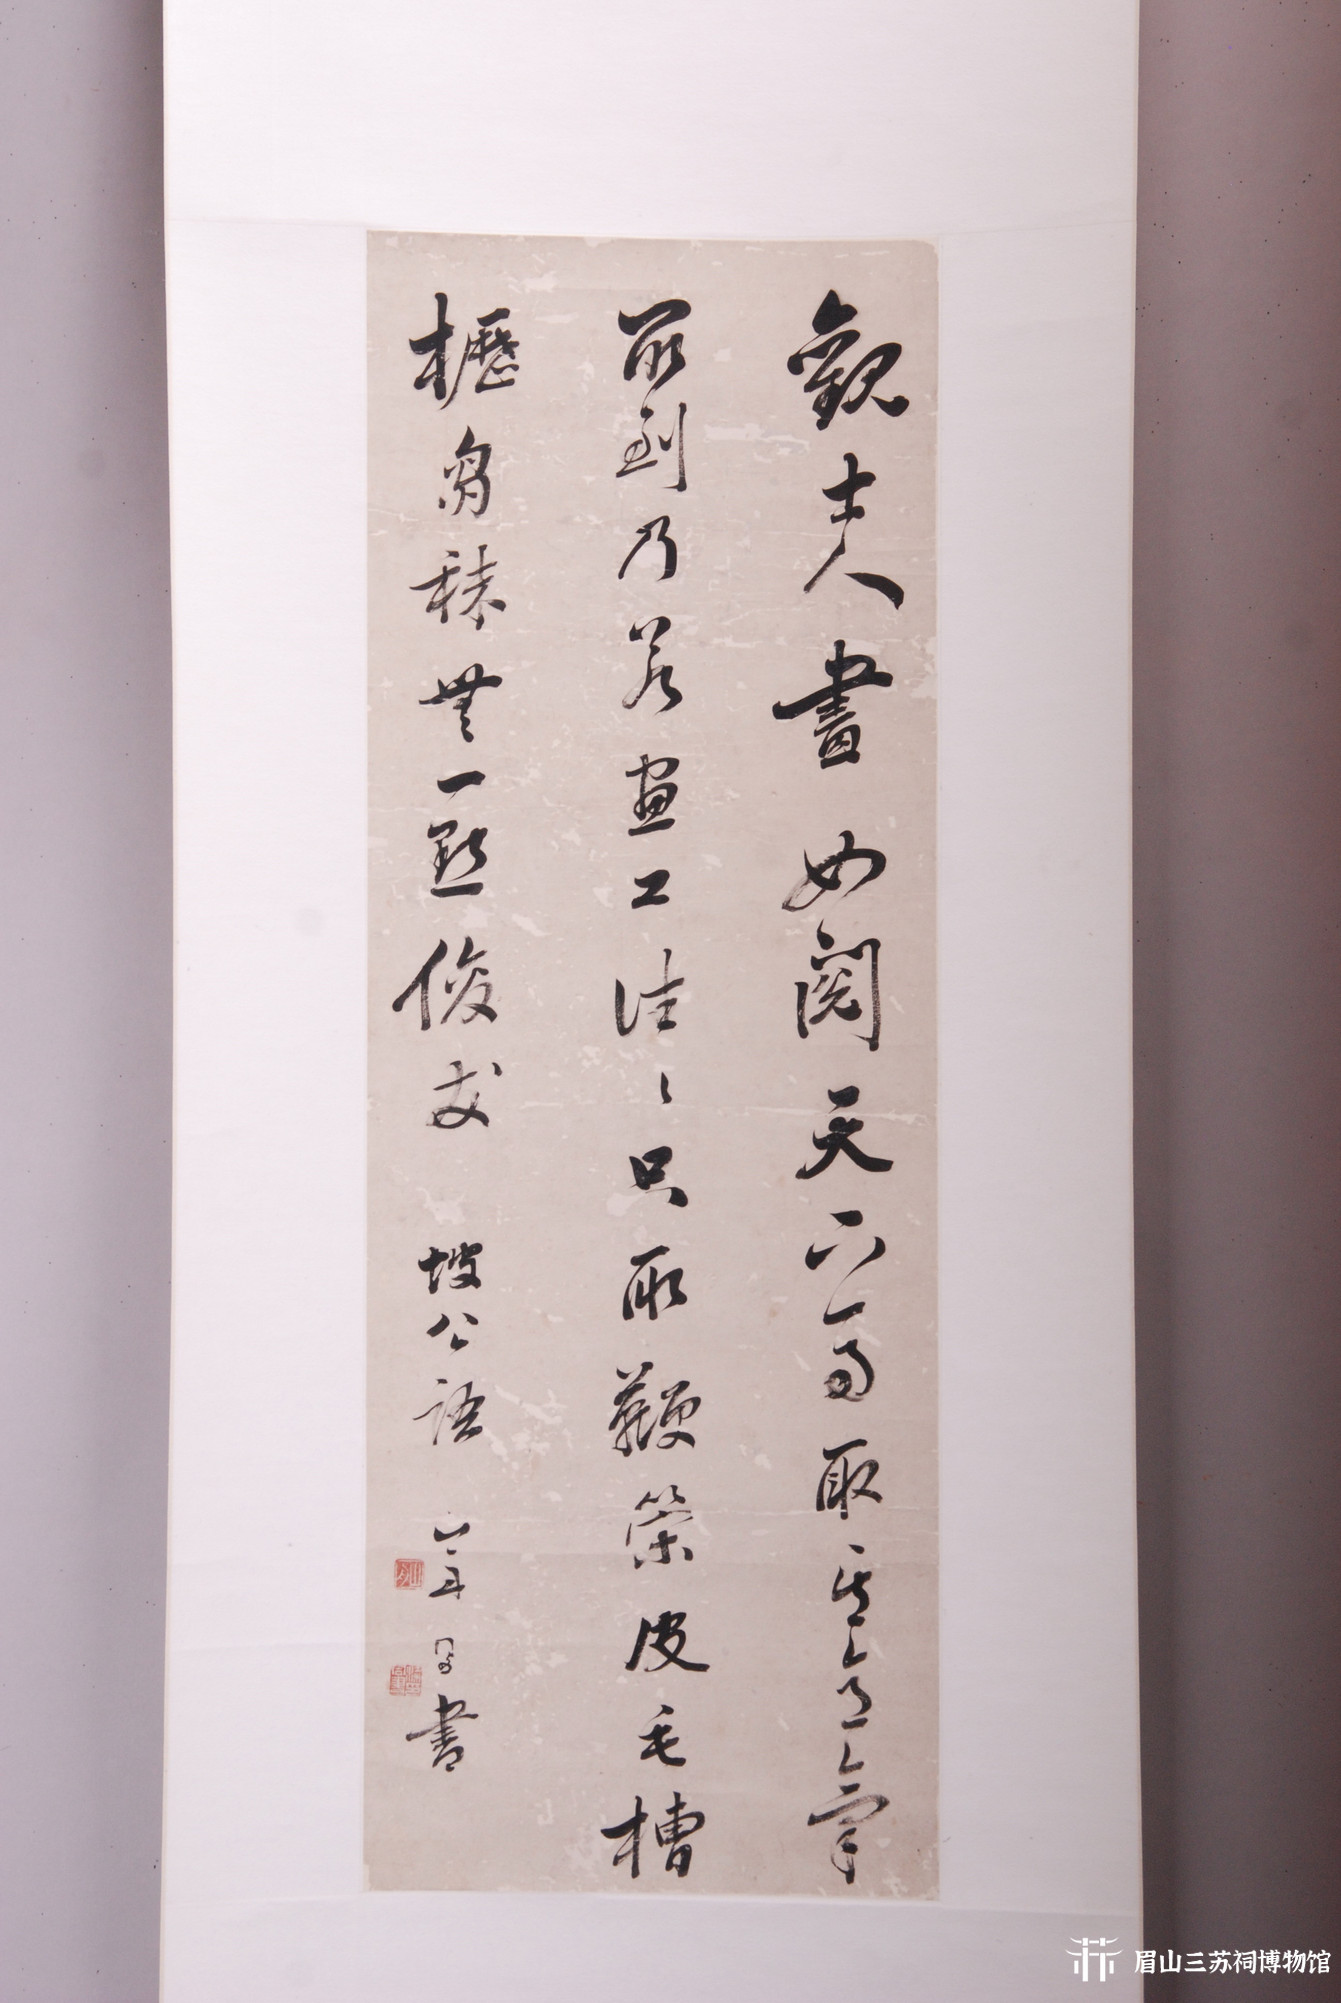 觀士人畫如閱天下馬取其意氣
所到乃若畫工往〻只取鞭策皮毛槽
櫪芻秣無一點俊发 坡公語 山舟同書
眉山三苏祠博物馆